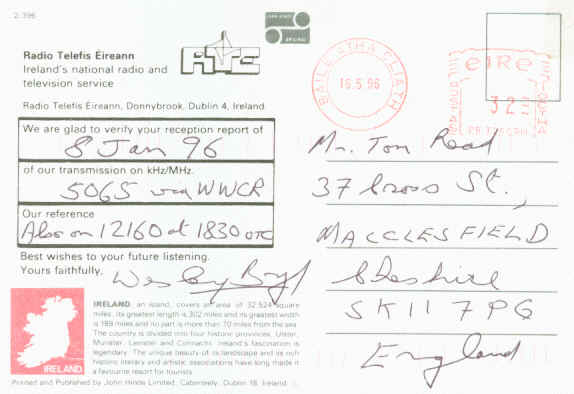 2/396
Radio Telefís Éireann
Ireland's national radio and
television service
Radio Telefís Éireann, Donnybrook, Dublin 4, Ireland
RTE
BAILE ÁTHA CLIATH
16.5.96
éire
32
We are glad to verify your reception report of
8 Jan 96
of our transmission on kHz/MHz.
5065 via WWCR
Our reference
Also on 12160 at 1830 UTC
Best wishes to your future listening.
Yours faithfully,
Wesley Boyd
Mr. Tom Read
37 Cross St.,
MACCLESFIELD
Cheshire
SK11 7PG
England
IRELAND
IRELAND, an island, covers an area of 32,524 square
miles. Its greatest length is 302 miles and its greatest width
is 189 miles and no part is more than 70 miles from the sea.
The country is divided into four historic provinces, Ulster,
Munster, Leinster and Connacht. Ireland's fascination is
legendary. The unique beauty of its landscape and its rich
historic literary and artistic associations have long made it
a favourite resort for tourists.
Printed and Published by John Hinde Limited, Cabinteely, Dublin 18, Ireland.